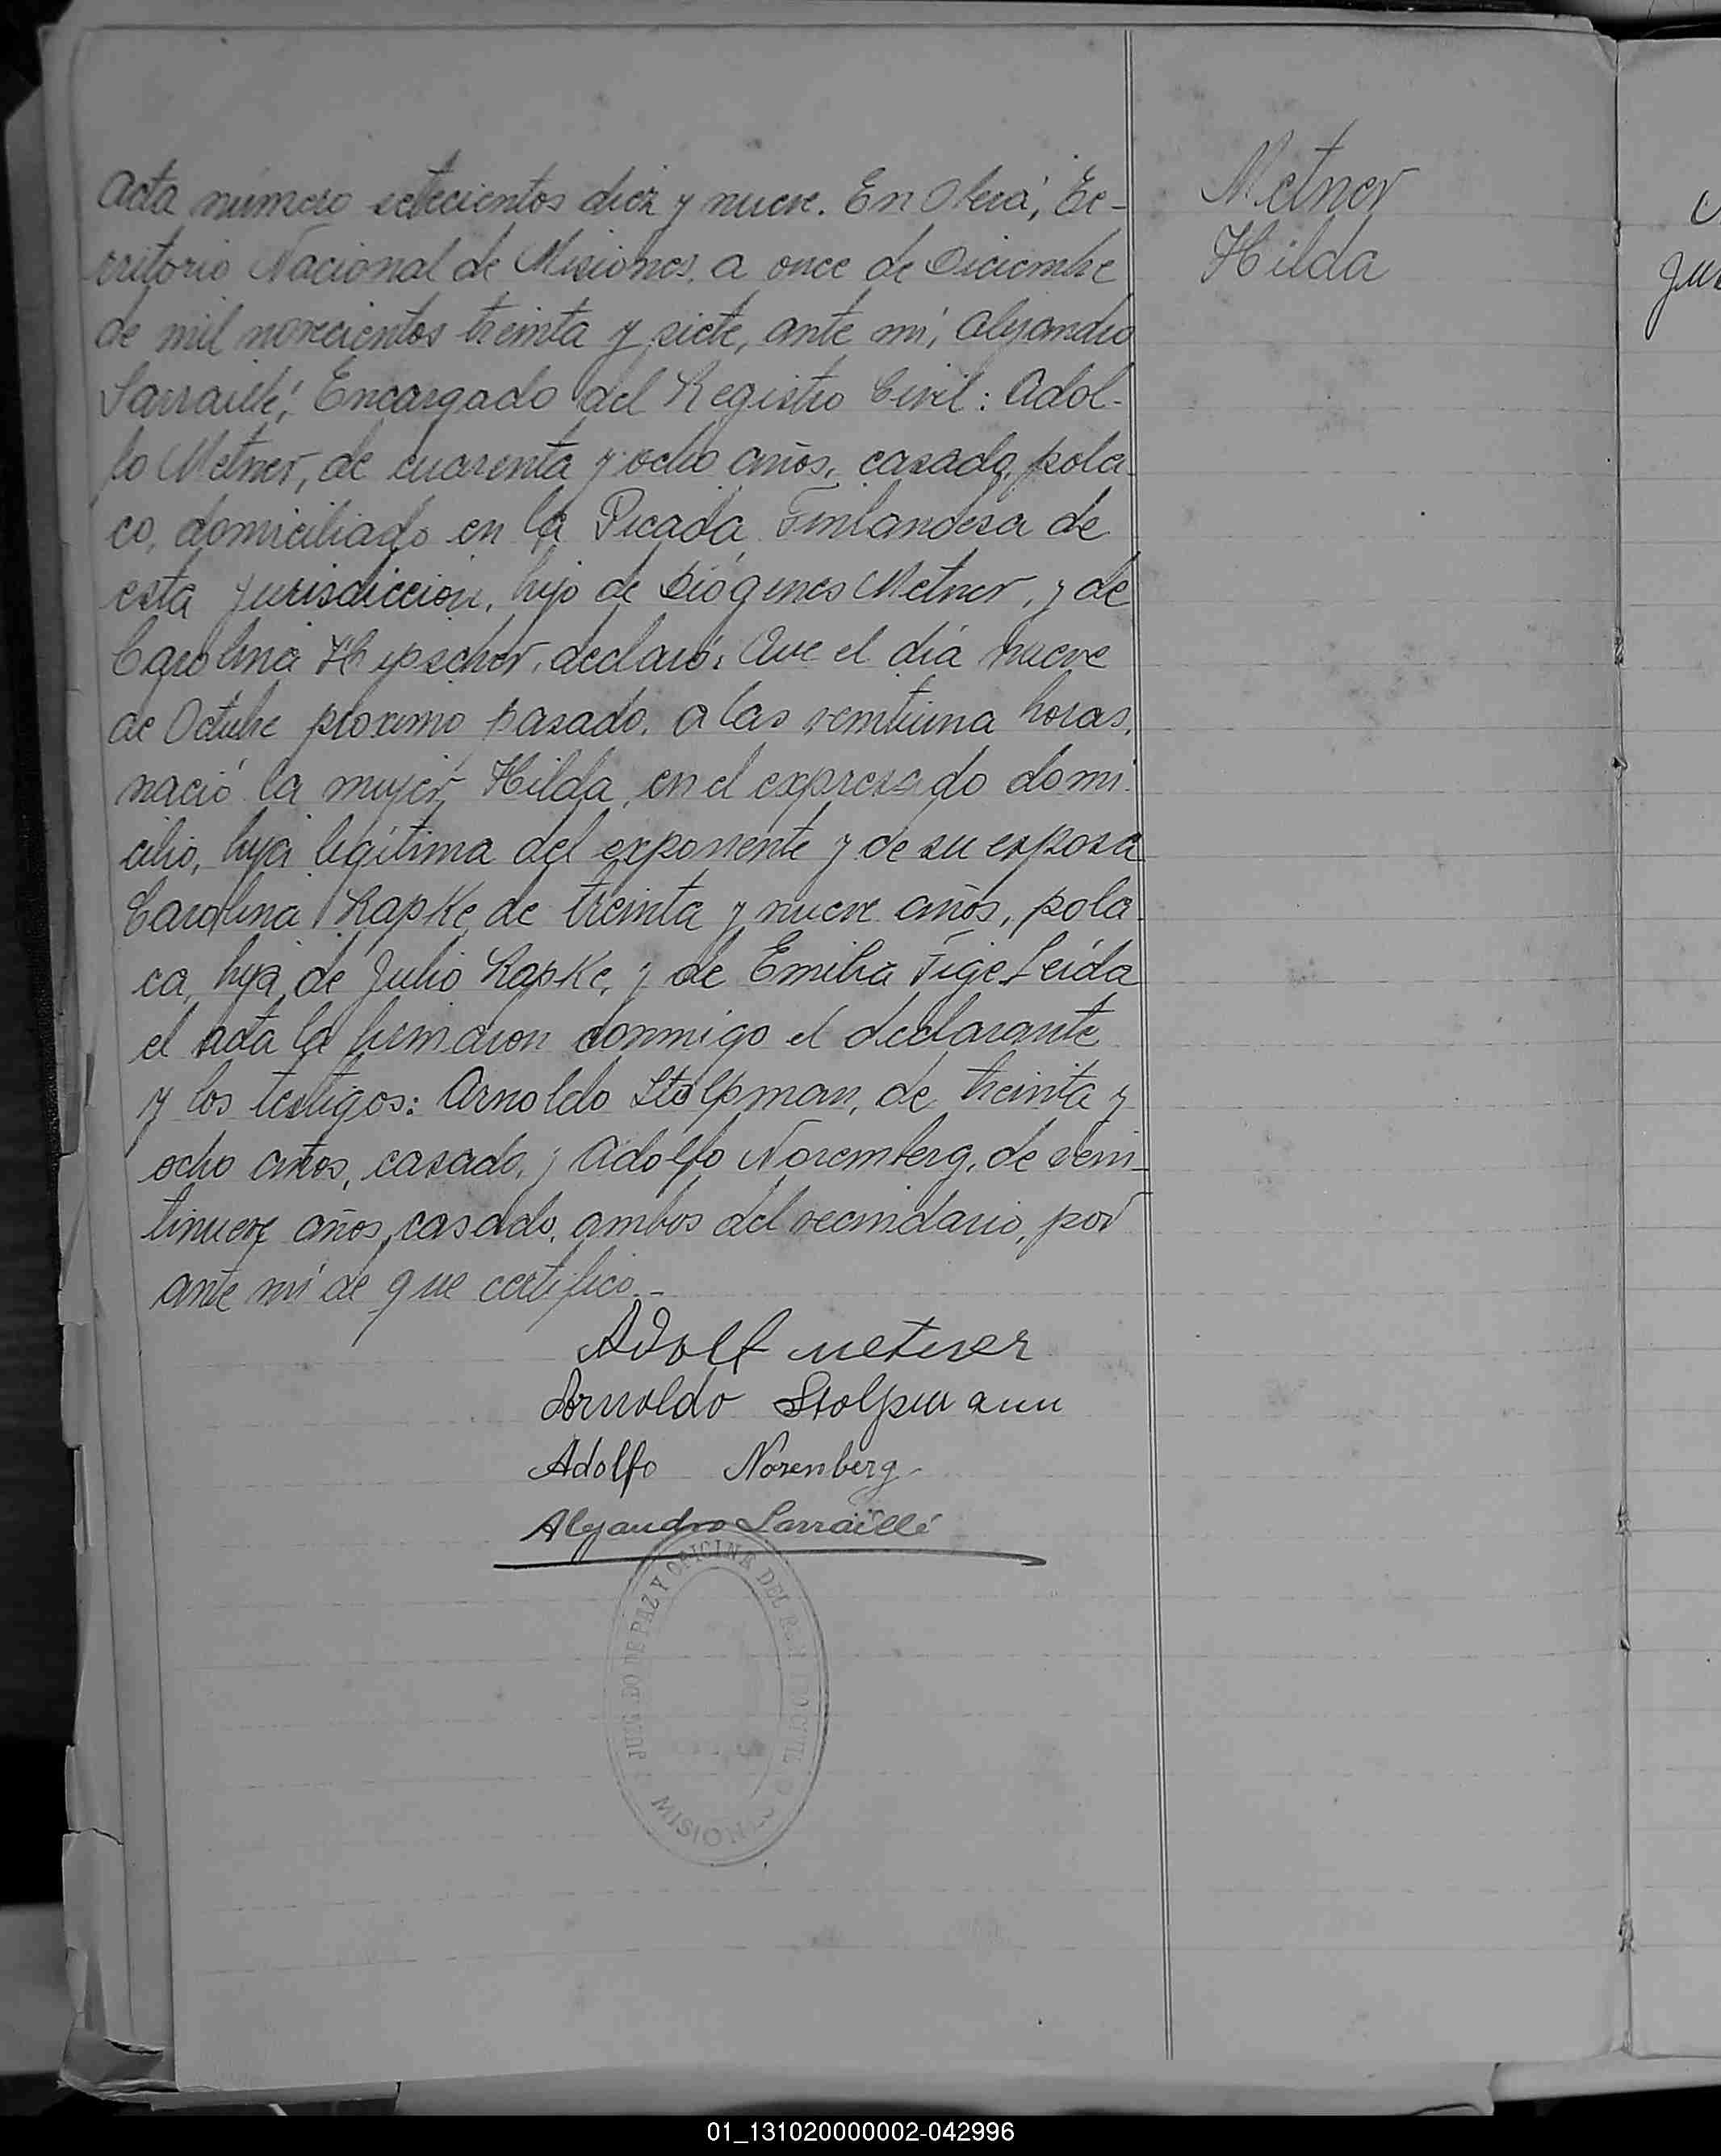 Acta número setecientos diez y nueve. En Oberá, Te-
rritorio Nacional de Misiones, a once de Diciembre
de mil novecientos treinta y siete, ante mí, Alejandro
Larraillé, Encargado del Registro Civil: Adol-
fo Metner, de cuarenta y ocho años, casado, pola-
co, domiciliado en la Picada Finlandesa de
esta jurisdicción, hijo de Diógenes Metner, y de
Carolina Hipscher, declaró: Que el día nueve
de Octubre próximo pasado, a las veintiuna horas,
nació la mujer Hilda, en el expresado domi-
cilio, hija legítima del exponente y de su esposa
Carolina Rapke, de treinta y nueve años, pola-
ca, hija de Julio Rapke, y de Emilia Tige. Leída
el acta la firmaron conmigo el declarante
y los testigos: Arnoldo Stolpman, de treinta y
ocho años, casado, y Adolfo Noremberg, de vein-
tinueve años, casado, ambos del vecindario, por
ante mí de que certifico.-
Metner
Hilda
Adolf Metner
Arnoldo Stolpmann
Adolfo Norenberg
Alejandro Larraillé
JUZGADO DE PAZ Y OFICINA DEL CIVIL
MISIONES
01_131020000002-042996